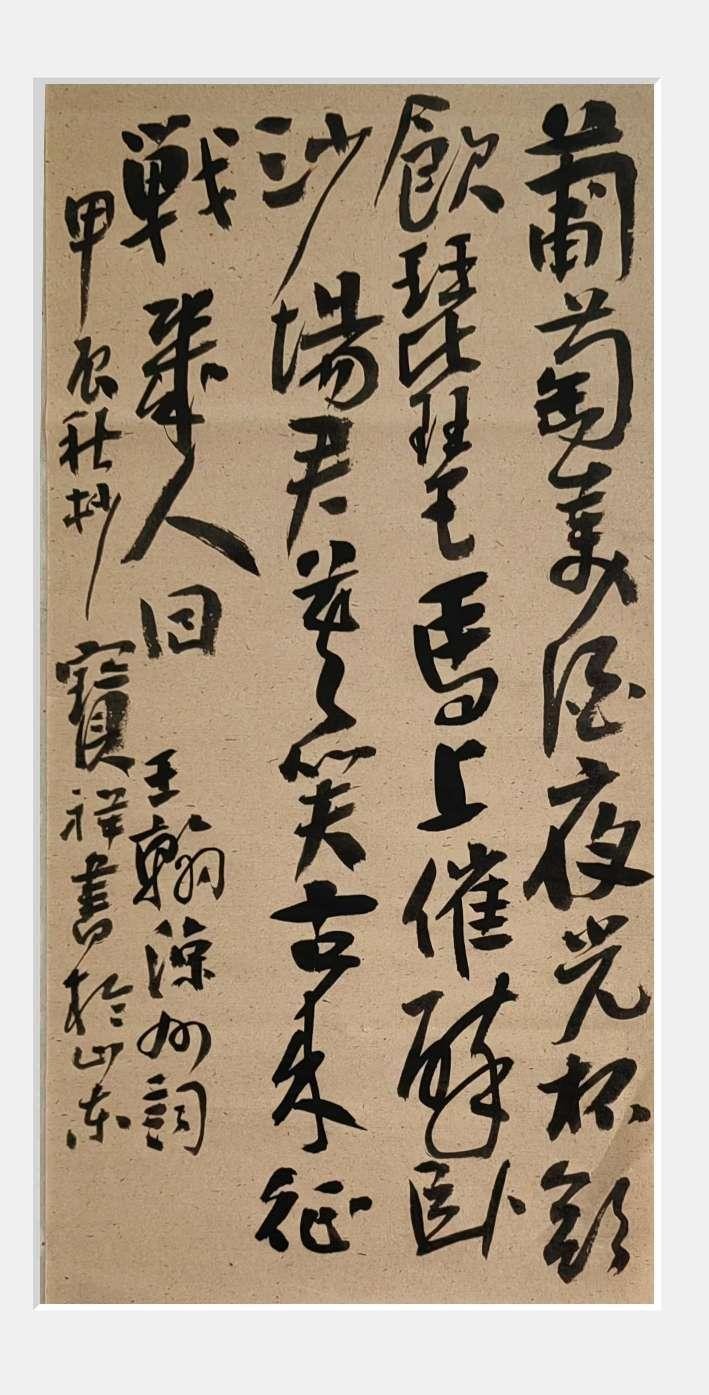 葡萄美酒夜光杯欲
飲琵琶馬上催醉卧
沙場君莫笑古来征
戦幾人回 王翰涼州詞
甲辰秋杪 寶祥書於山东